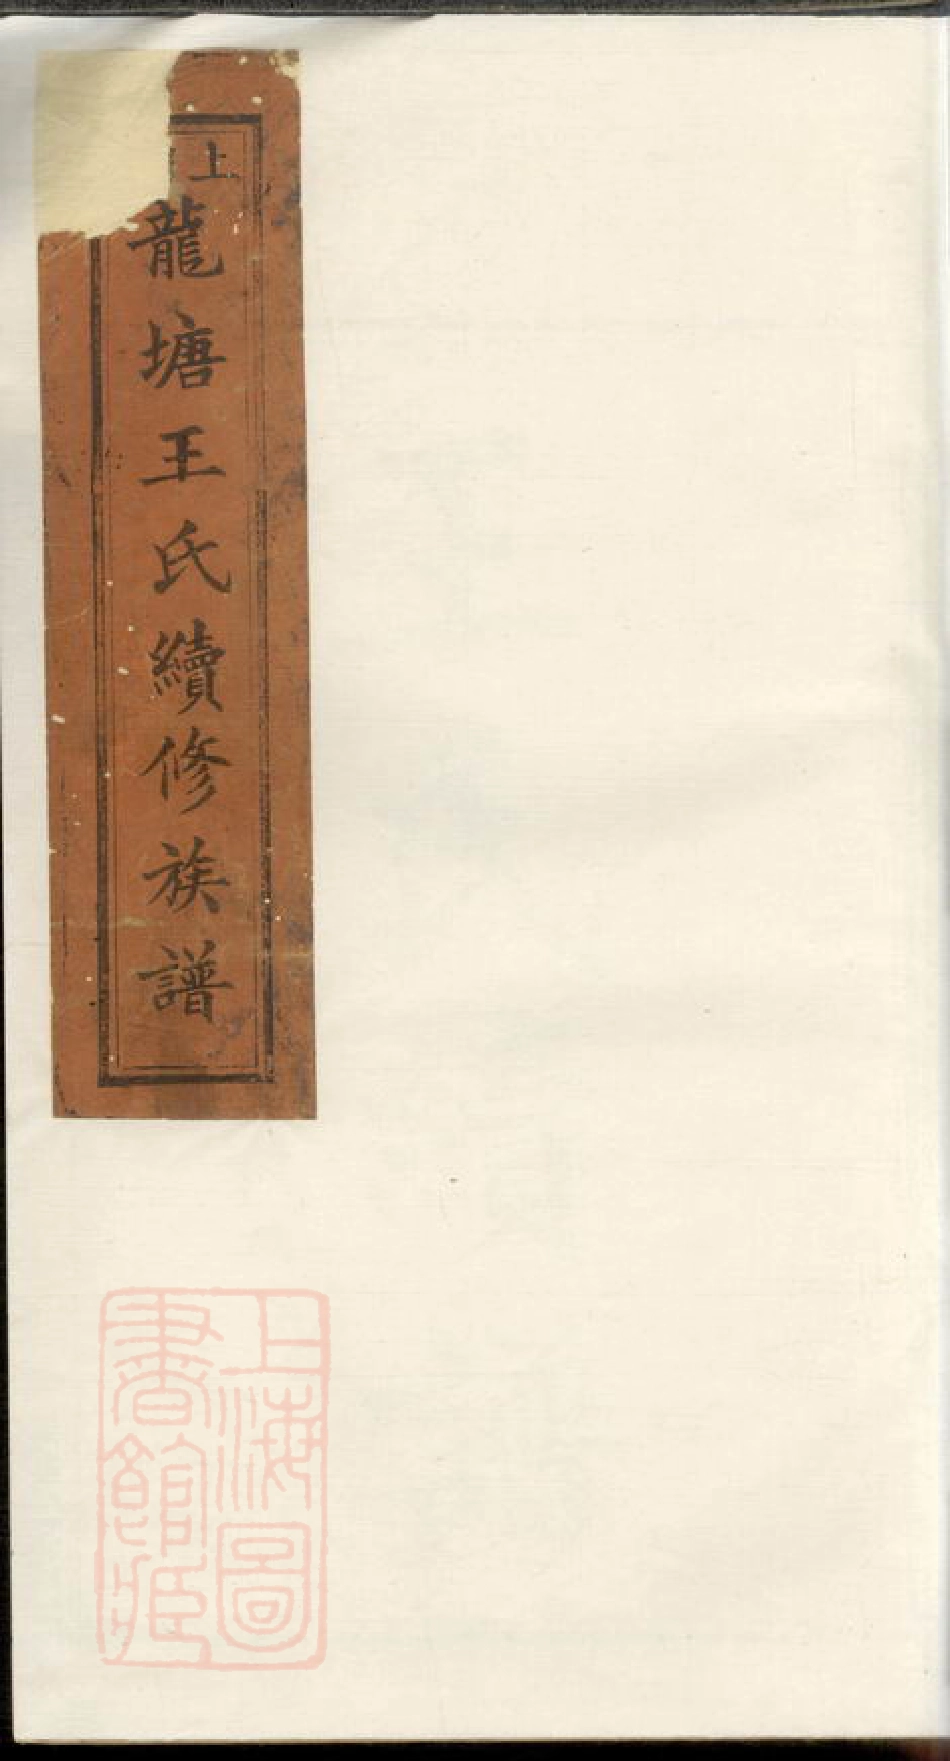 上
龍塘王氏續修族譜
上海圖
書館藏